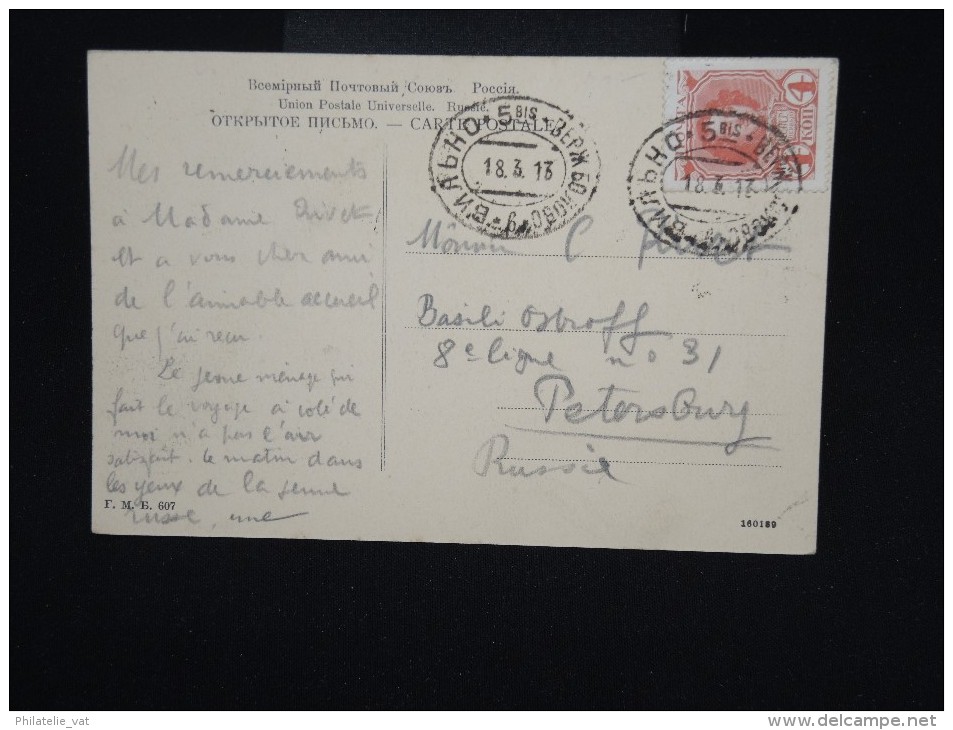 Всемірный Почтовый Союзъ. Россія.
Union Postale Universelle. Russie.
ОТКРЫТОЕ ПИСЬМО. — CARTE POSTALE
Mes remerciements
à Madame
et a vous cher ami
de l'aimable accueil
que j'ai reçu.
Le jeune ménage qui
fait le voyage à coté de
moi n'a pas l'air
satisfait. le matin dans
les yeux de la jeune
russe, une
Г. М. Б. 607
ВИЛЬНО • 5 BIS • ВЕРЖБОЛОВО
18.3.13
4 КОП
ВИЛЬНО • 5 BIS
18.3.13
C
Basili Ostroff
8e ligne no 31
Petersburg
Russie
160189
Philatelie_vat
www.delcampe.net